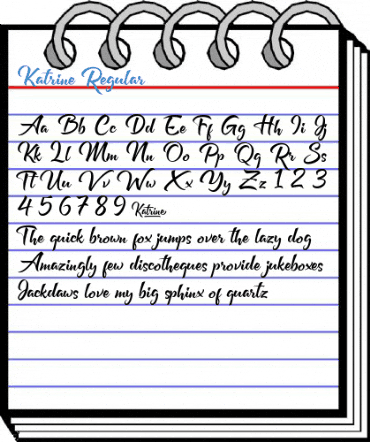 Katrine Regular
Aa Bb Cc Dd Ee Ff Gg Hh Ii Jj
Kk Ll Mm Nn Oo Pp Qq Rr Ss
Tt Uu Vv Ww Xx Yy Zz 1 2 3
4 5 6 7 8 9 Katrine
The quick brown fox jumps over the lazy dog
Amazingly few discotheques provide jukeboxes
Jackdaws love my big sphinx of quartz